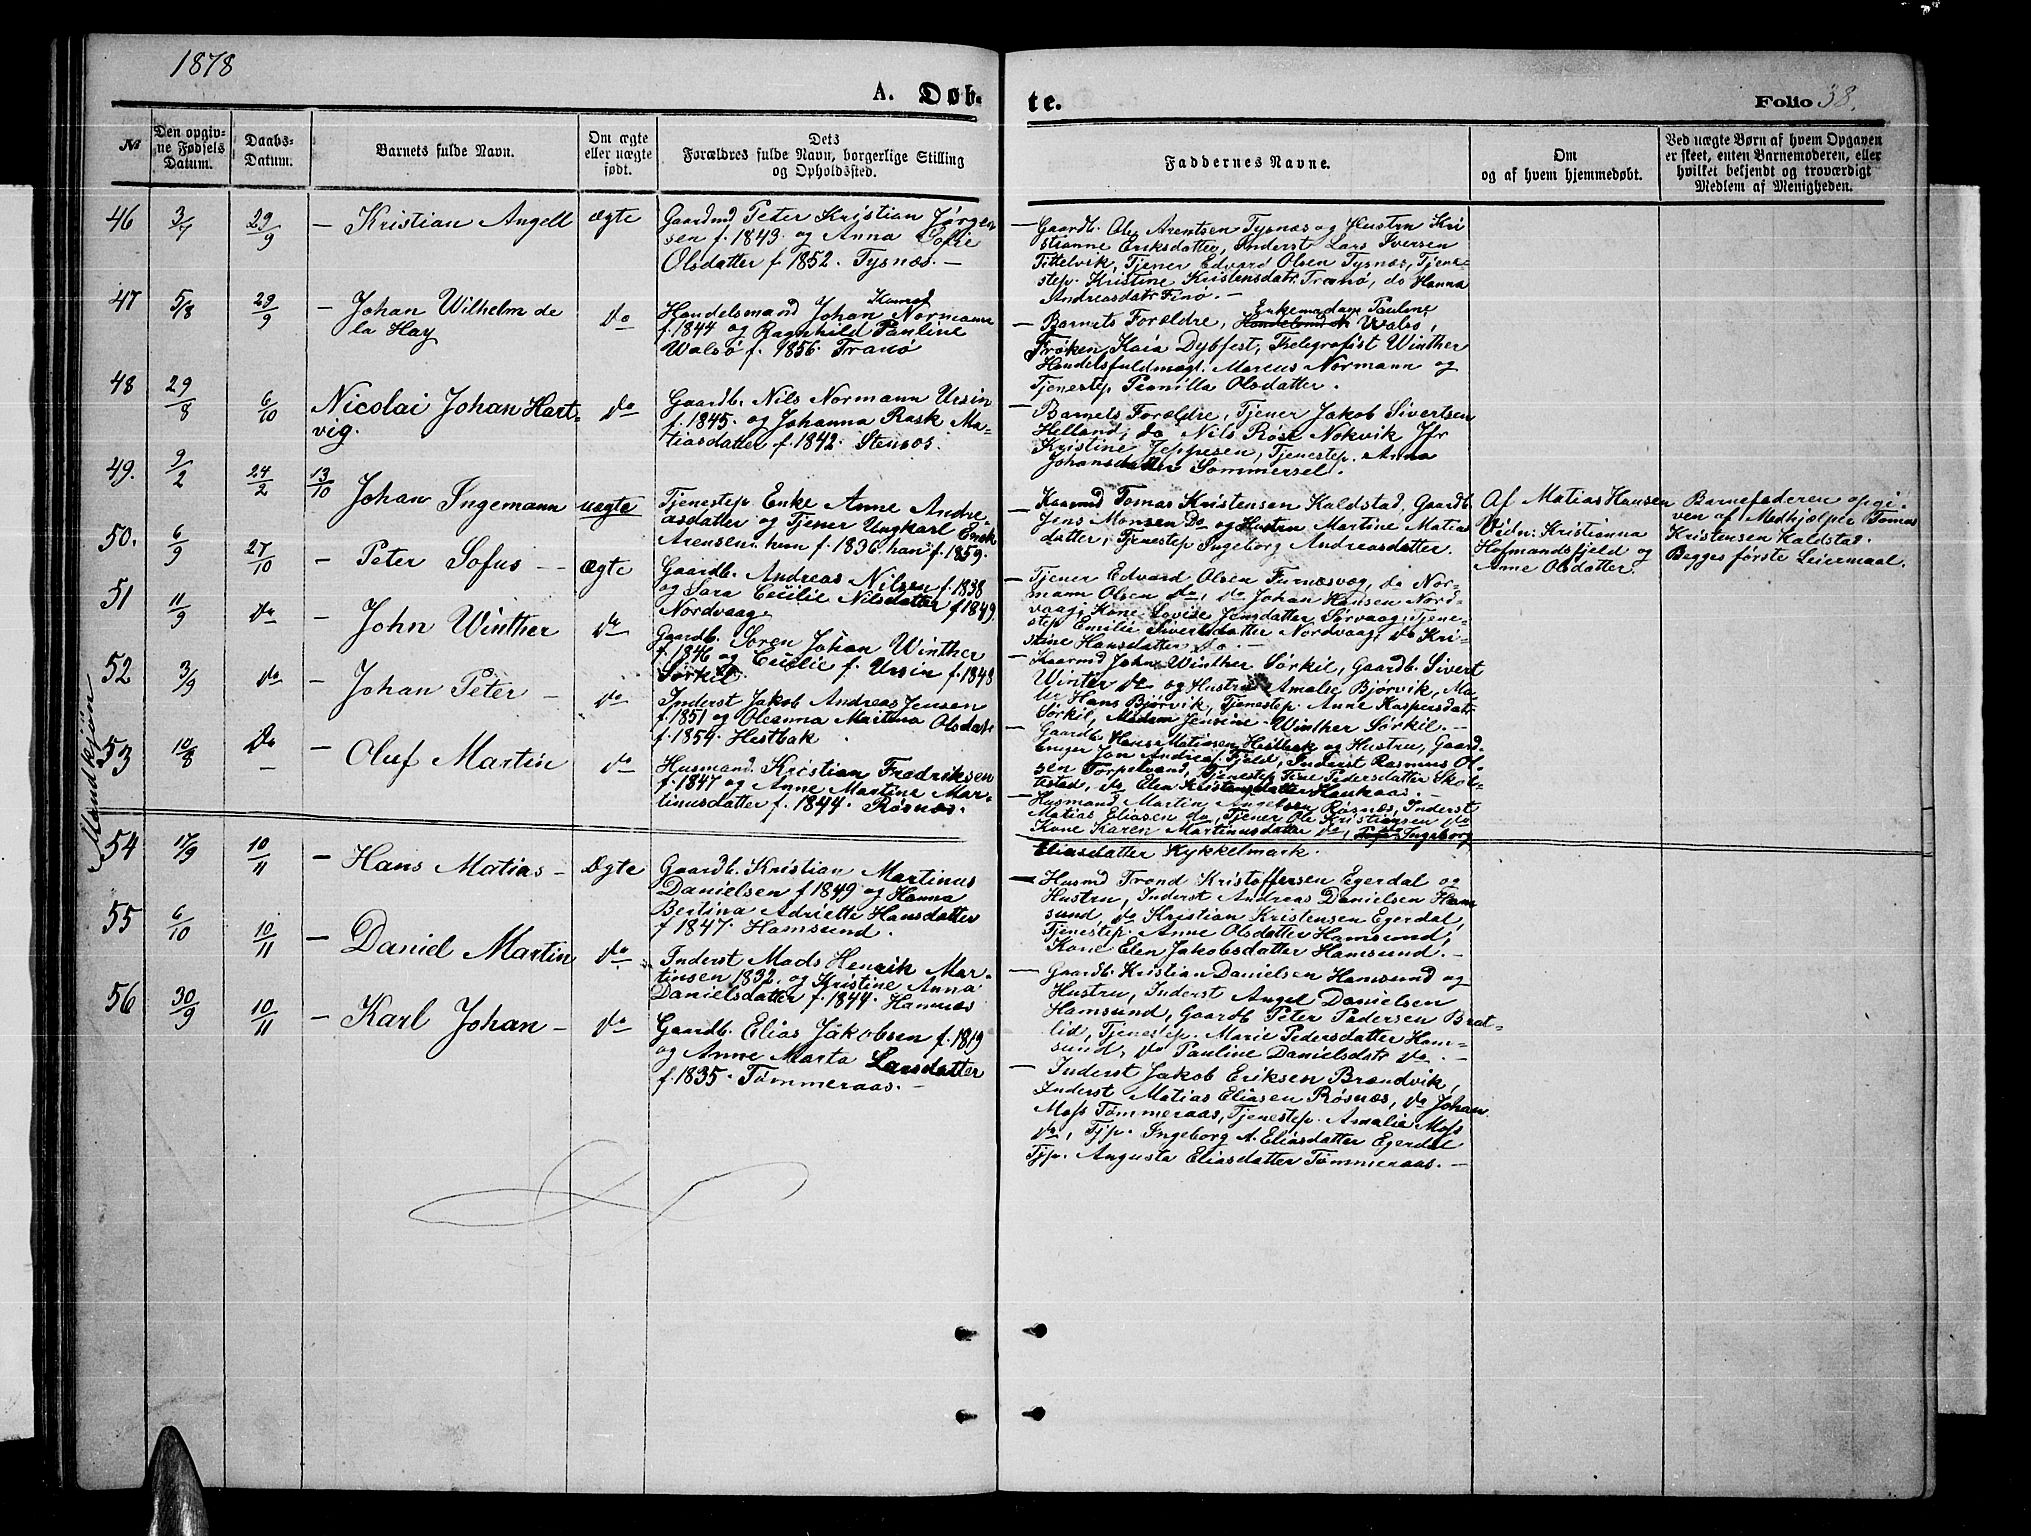 1878
A. Døb-
te.
Folio 38.
Mandkjön
№
Den opgiv-
ne Fødsels
Datum.
Daabs-
Datum.
Barnets fulde Navn.
Om ægte
eller uægte
født.
Dets
Forældres fulde Navn, borgerlige Stilling
og Opholdssted.
Faddernes Navne.
Om
og af hvem hjemmedøbt.
Ved uægte Børn af hvem Opgaven
er skeet, enten Barnemoderen, eller
hvilket bekjendt og troværdigt
Medlem af Menigheden.
46 3/7 29/9 – Kristian Angell ægte
Gaardmd Peter Kristian Jørgen
sen f. 1843 og Anna Sofie
Olsdatter f. 1852. Tysnæs. –
– Gaardb. Ole Arentsen Tysnæs og Hustru Kri
stianne Eriksdatter, Inderst Lars Iversen
Tittelvik, Tjener Edvard Olsen Tysnæs, Tjene-
step. Kristine Kristensdatr. Tranø, do Hanna
Andreasdatr Finö. –
47 5/8 29/9 – Johan Wilhelm de
la Hay do
Konrad
Handelsmand Johan Normann
f. 1844 og Ragnhild Pauline
Walsö f. 1856. Tranö
Enkemadame Pauline
– Barnets Forældre, Walsö,
Frøken Kaia Dybfest, Telegrafist Winther
Handelsfuldmægt. Marcus Normann og
Tjenestep. Pernilla Olsdatter.
48 29/8 6/10 Nicolai Johan Hart-
vig. do
Gaardb. Nils Normann Ursin
f. 1845 og Johanna Rask Ma-
tiasdatter f. 1842. Stensæs.
– Barnets Forældre, Tjener Jakob Sivertsen
Helland, do Nils Röst Nokvik Jfr
Kristine Jeppesen, Tjenestep. Anna
Johansdatter Sommersel.
49. 9/2 24/2 13/10 Johan Ingemann uægte
Tjenestep Enke Anne Andre-
asdatter og Tjener Ungkarl Enok
Arensen. hun f. 1836 han f. 1859.
– Kaarmd Tomas Kristensen Kaldstad, Gaardb.
Jens Monsen Do og Hustru Martine Matias
datter, Tjenestep Ingeborg Andreasdatter.
Af Matias Hansen
Vidn: Kristianna
Hofmandsfjeld og
Anne Olsdatter.
Barnefaderen opgi-
ven af Medhjælper Tomas
Kristensen Kaldstad.
Begges förste Leiermaal.
50. 6/9 27/10 – Peter Sofus – – ægte
Gaardb. Andreas Nilsen f. 1838
og Sara Cecilie Nilsdatter f. 1849.
Nordvaag
– Tjener Edvard Olsen Furnæsvaag, do Nor-
mann Olsen do, do Johan Hansen Nord-
vaag, Kone Lovise Jensdatter Sørvaag, Tjene-
step Emilie Sivertsdatter Nordvaag, do Kri-
stine Hansdatter do. –
51 11/9 do – John Winther do
Gaardb. Soren Johan Winther
f. 1846 og Cecilie f. Ursin f. 1848
Sørkil
– Kaarmd John Winther Sörkil, Gaardb. Sivert
Winter do og Hustru Amalie Bjørvik, Ma-
ler Hans Bjørvik, Tjenestep. Anne Kaspersdatr
Sörkil, Madam Jensine Winther Sörkil. –
52 3/9 do – Johan Peter – do
Inderst Jakob Andreas Jensen
f. 1851 og Oleanna Martina Olsdatr
f. 1854 Hestbak
– Gaardb. Hans Matiasen Hestbak og Hustru, Gaard-
bruger Jon Andreas Fjeld, Inderst Rasmus Ol-
sen Torpelvand, Tjenestep Sine Pedersdatter Skol-
testad, do Elen Kristensdatter Haukaas. –
53 10/8 Do – Oluf Martin do
Husmand. Kristian Fredriksen
f. 1847 og Anne Martine Mar-
tinusdatter f. 1844. Røsnæs.
– Husmand Martin Angelsen Røsnæs, Inderst
Matias Eliasen do, Tjener Ole Kristiansen do
Kone Karen Martinusdatter do, Ingeborg
Eliasdatter Kykkelmark.
54 17/9 10/11 – Hans Matias – Ægte
Gaardb. Kristian Martinus
Danielsen f. 1849 og Hanna
Bertina Adriette Hansdatter
f 1847. Hamsund.
– Husmd Trond Kristoffersen Egerdal og
Hustru, Inderst Andreas Danielsen Ham
sund, do Kristian Kristensen Egerdal,
Tjenestep. Anne Olsdatter Hamsund,
Kone Elen Jakobsdatter Hamsund. –
55 6/10 10/11 – Daniel Martin do
Inderst Mads Henrik Mar-
tinsen 1832 og Kristine Anna
Danielsdatter f. 1844. Hamnæs
– Gaardb. Kristian Danielsen Hamsund og
Hustru, Inderst Angel Danielsen
Hamsund, Gaardb Peter Pedersen Brat-
lid, Tjenestep. Marie Pedersdatter Ham-
sund, do Pauline Danielsdatr do. –
56 30/9 10/11 – Karl Johan – do
Gaardb. Elias Jakobsen f. 1819
og Anne Marta Larsdatter
f. 1835. Tømmeraas. –
– Inderst Jakob Eriksen Brandvik,
Inderst Matias Eliasen Røsnæs, do Johan
Moss Tømmeraas, Tjenestep. Amalie Moss
do, Tjp. Ingeborg A. Eliasdatter Egerdal
Tjp. Augusta Eliasdatter Tømmeraas. –